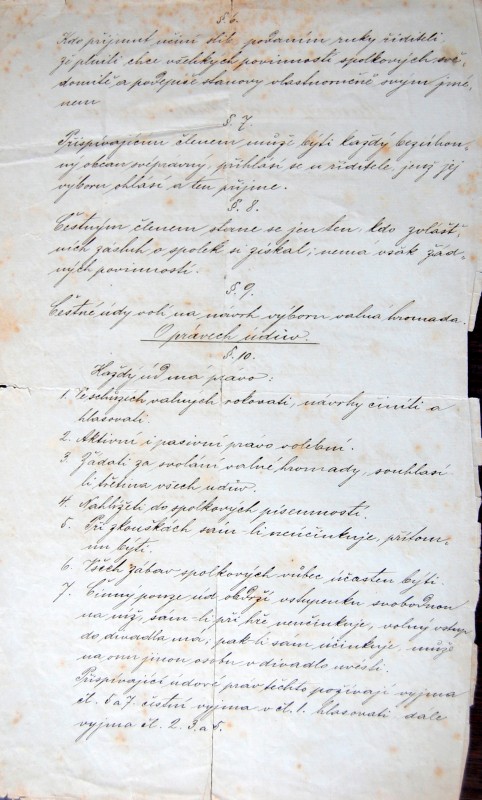 § 6.
Kdo přijmut učiní slib podáním ruky řiditeli,
že plniti chce všelikých povinností spolkových svě-
domitě a podepíše stanovy vlastnoručně svým jmé-
nem
§ 7
Přispívajícím členem může býti každý bezúhon-
ný občan svéprávný, přihlásí se u ředitele, jenž jej
výboru ohlásí a ten přijme.
§. 8.
Čestným členem stane se jen ten, kdo zvlášt-
ních zásluh o spolek si získal; nemá však žád-
ných povinností.
§ 9.
Čestné údy volí na návrh výboru valná hromada.
O právech údův.
§. 10.
Každý úd má právo:
1. Ve schůzích valných rokovati, návrhy činiti a
hlasovati.
2. Aktivní i pasivní právo volební.
3. Žádati za svolání valné hromady, souhlasí
li třetina všech udův.
4. Nahlížeti do spolkových písemností.
5. Při zkouškách sám-li neúčinkuje, přítom-
ním býti.
6. Všech zábav spolkových vůbec účasten býti.
7. Činný pouze úd obdrží vstupenku svobodnou
na níž, sám-li při hře neúčinkuje, volný vstup
do divadla má; pak-li sám účinkuje, může
na onu jinou osobu v divadlo uvésti.
Přispívající údové práv těchto požívají vyjma
čl. 5 a 7. čestní vyjma v čl. 1. hlasovati, dále
vyjma čl. 2. 3. a 5.